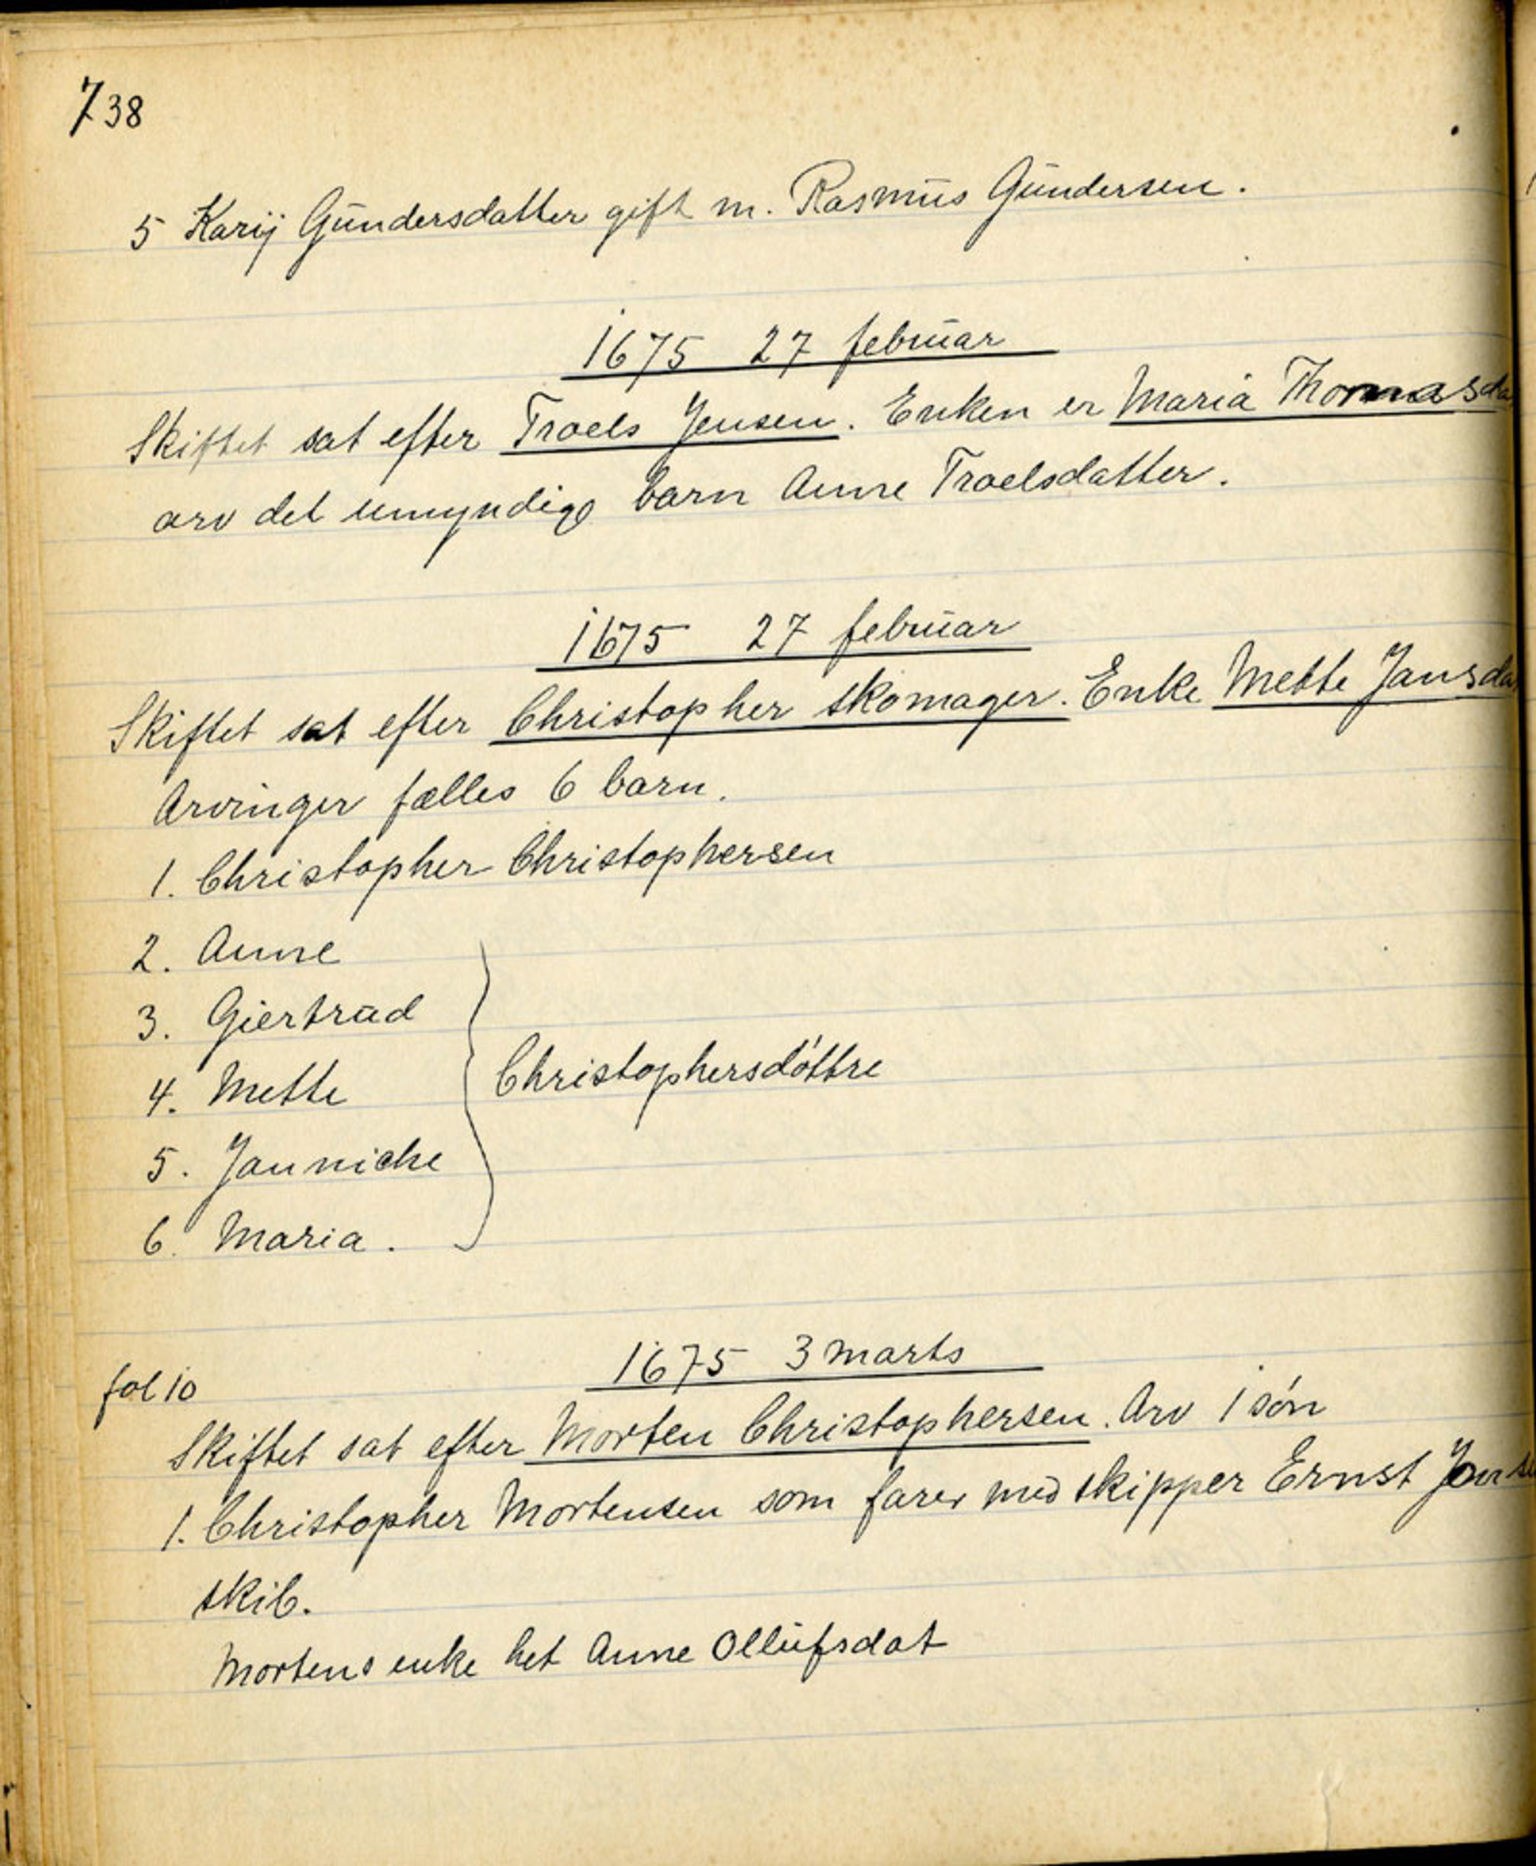 738
5 Karij Gundersdatter gift m. Rasmus Gundersen.
1675 27 februar
Skiftet sat efter Troels Jensen. Enken er Maria Thomasda
arv det umyndige barn Anne Troelsdatter.
1675 27 februar
Skiftet sat efter Christopher skomager. Enke Mette Jansda
Arvinger fælles 6 barn.
1. Christopher Christophersen
2. Anne
3. Giertrud
4. Mette
Christophersdøttre
5. Janniche
6. Maria.
1675 3 marts
fol 10
Skiftet sat efter Morten Christophersen. Arv 1 søn
1. Christopher Mortensen som farer med skipper Ernst
skib.
Mortens enke het Anne Ollufsdat